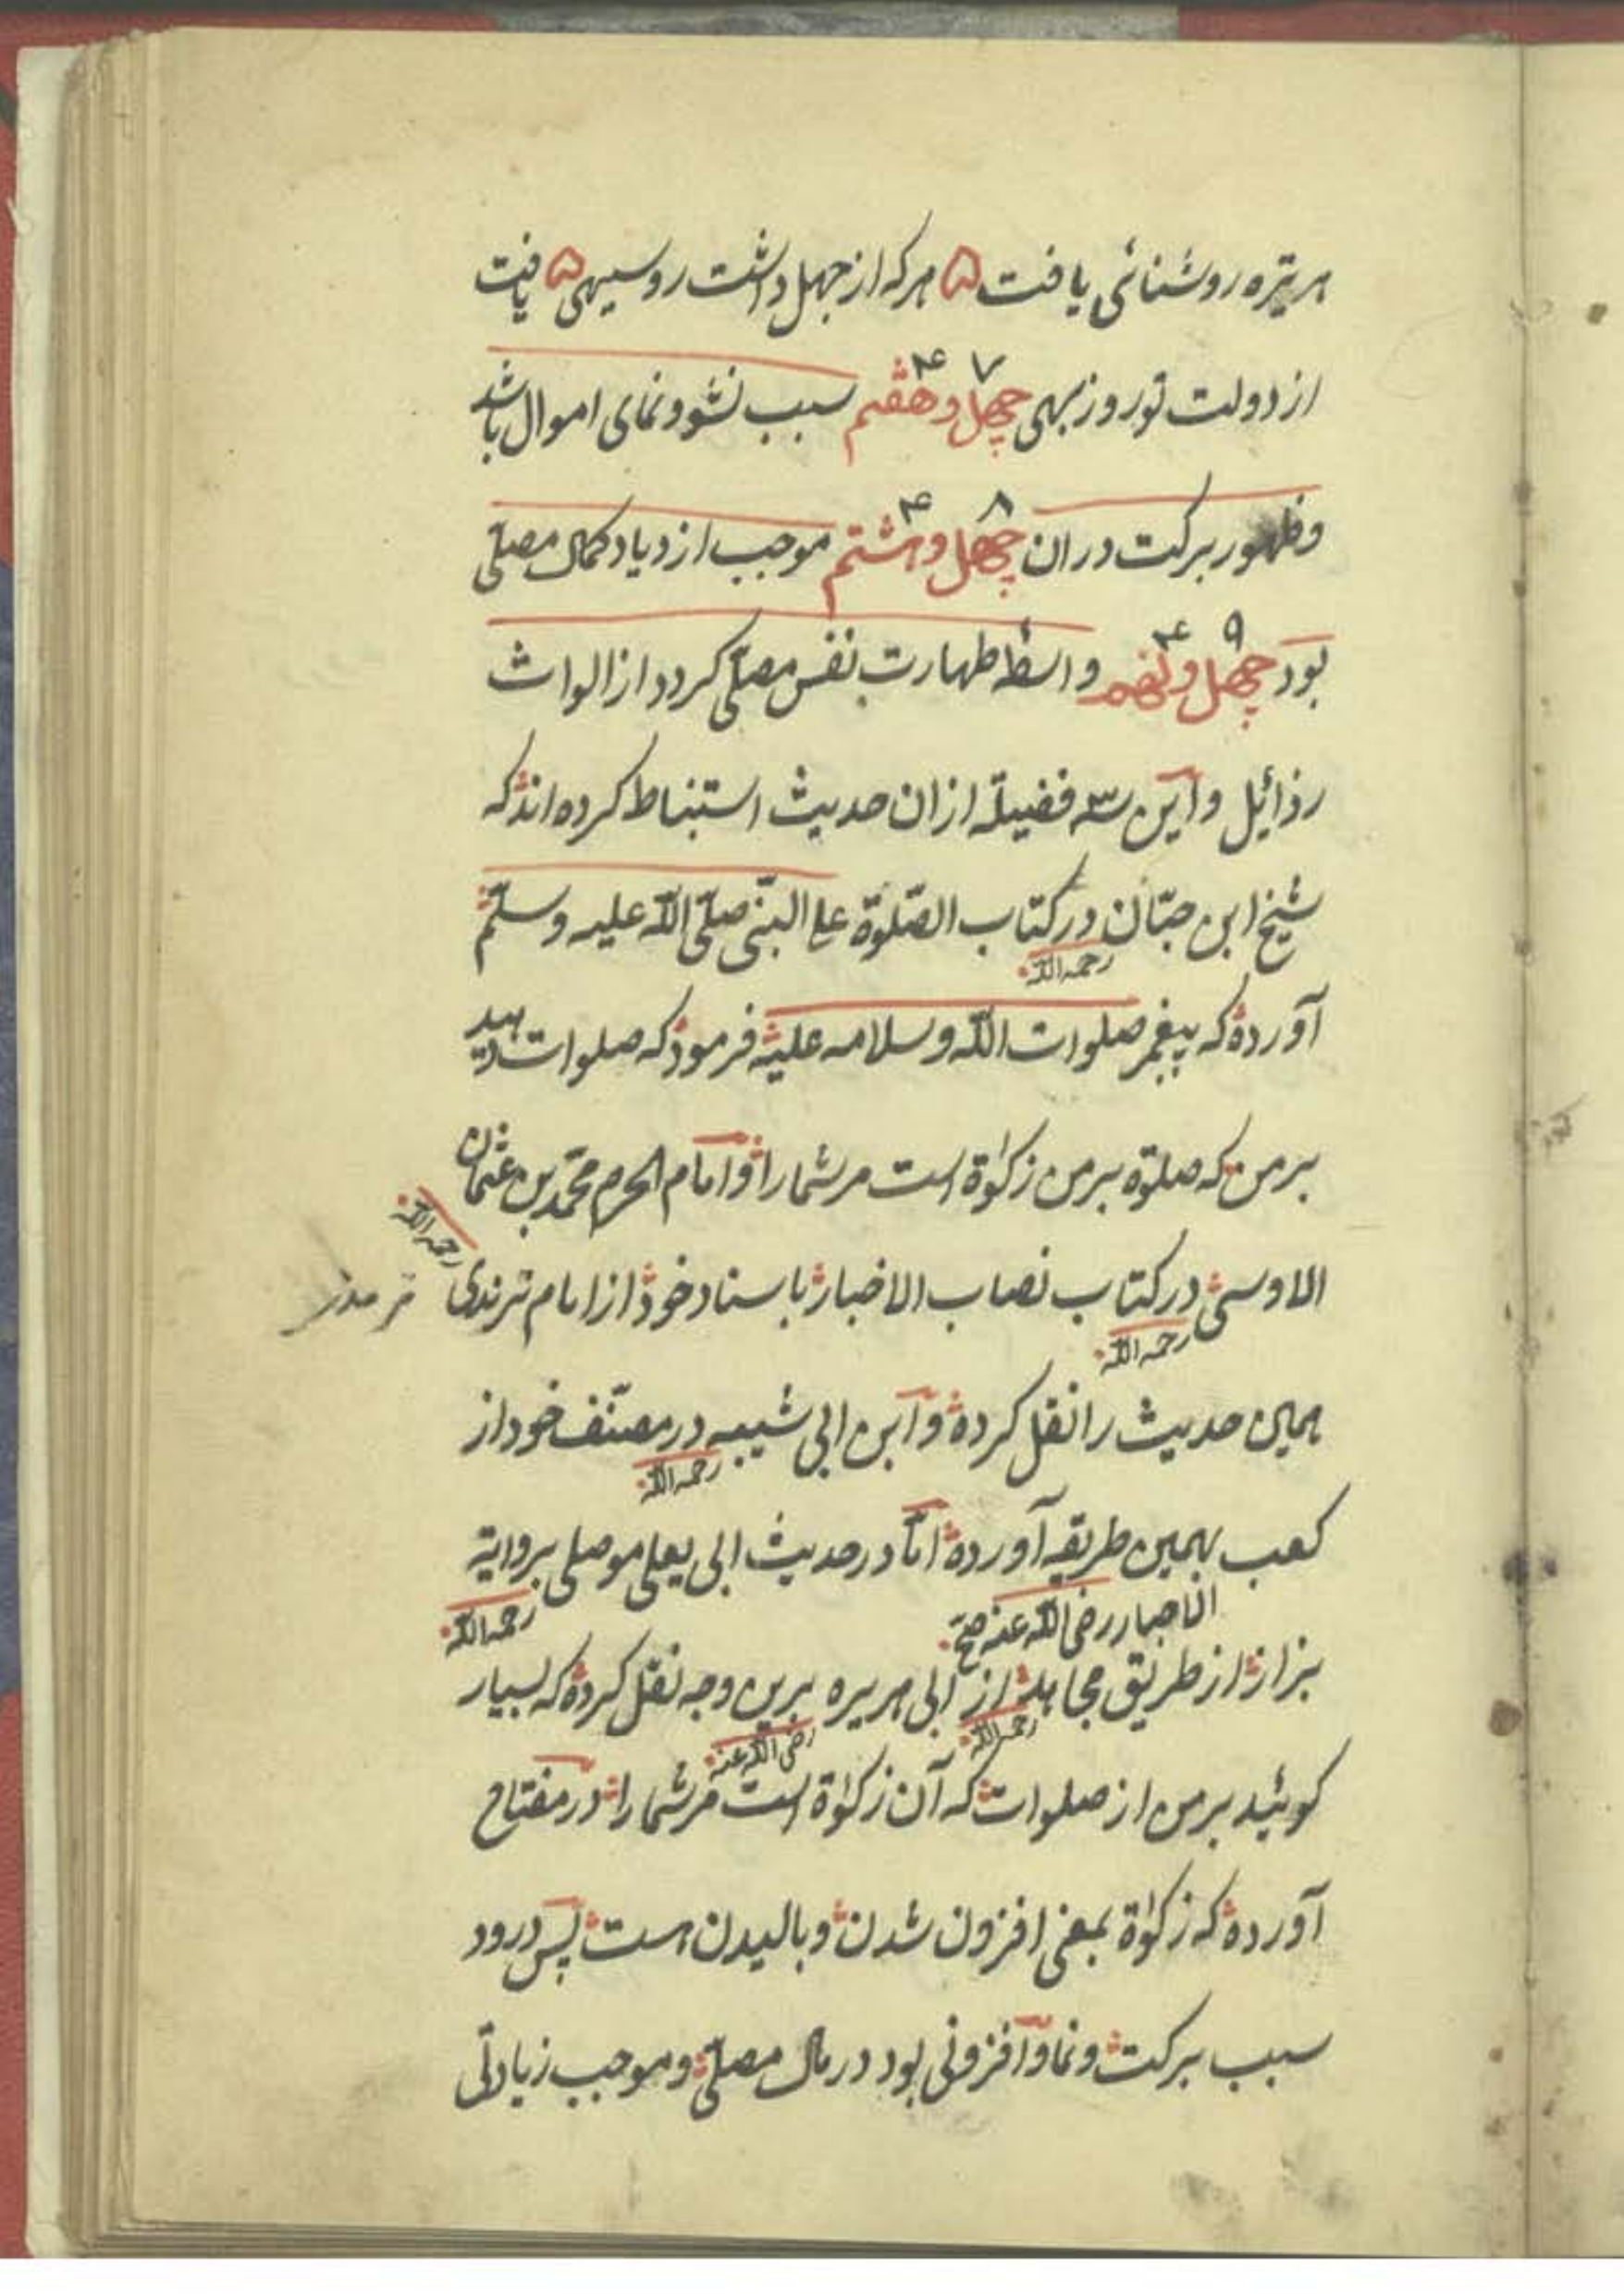 هر تیره روشنائی یافت ۵ هرکه از جهل داشت روسیهی ۵ یافت
از دولت تو روز بهی چهل و هفتم ۴۷ سبب نشو و نمای اموال باشد
و ظهور برکت دران چهل و هشتم ۴۸ موجب ازدیاد کمال مصلی
بود چهل و نهم ۴۹ واسطهٔ طهارت نفس مصلّی کردد از الواث
رذائل و این سه فضیلة ازان حدیث استنباط کرده اند که
شیخ ابن حبّان در کتاب الصّلوة علی النبّی صلّی اللّه علیه وسلّم
رحمه اللّه
آورده که پیغمبر صلوات اللّه وسلامه علیه فرمود که صلوات دهید
بر من که صلوة بر من زکوٰة است مر شما را و امام الحرم محمّد بن عثمان
رحمه اللّه
الاوسی در کتاب نصاب الاخبار باسناد خود از امام ترندی ترمدی
رحمه اللّه
همین حدیث را نقل کرده و ابن ابی شیبه در مصنّف خود از
رحمه اللّه
کعب بهمین طریقه آورده امّا در حدیث ابی یعلی موصلی بروایة
الاحبار رضی اللّه عنه صح رحمه اللّه
بزاز از طریق مجاهد از ابی هریره برین وجه نقل کرده که بسیار
رحمه اللّه رضی اللّه عنه
کوئید بر من از صلوات که آن زکوٰة است مر شما را در مفتاح
آورده که زکوٰة بمعنی افزون شدن و بالیدن است پس درود
سبب برکت و نما و افزونی بود در مال مصلّی و موجب زیادتی